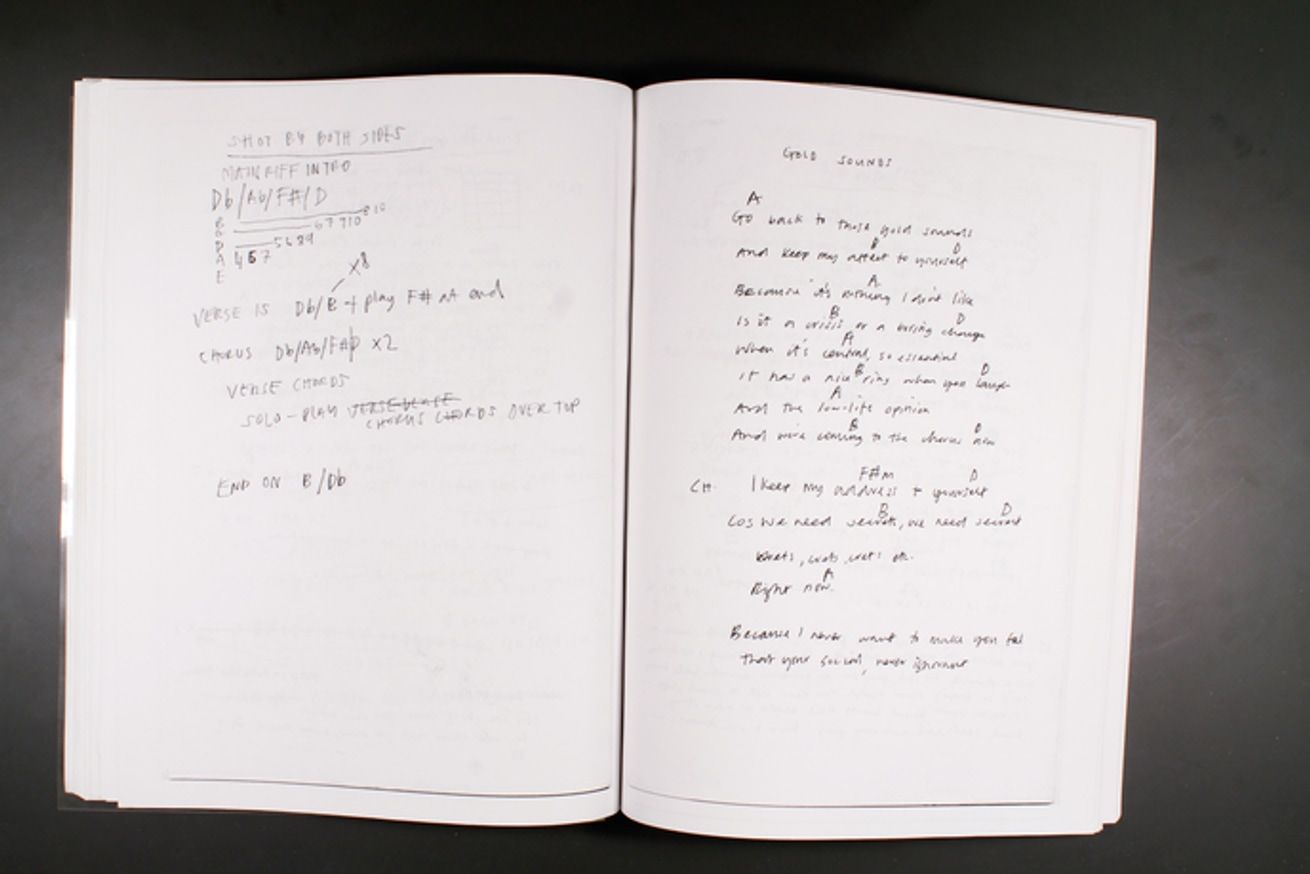 SHOT BY BOTH SIDES
MAIN RIFF INTRO
Db/Ab/F#/D
8 10
G 6 7 9 10
D 5 6 8 9
A 4 6 7
E
X8
VERSE IS Db/B + play F# at end
CHORUS Db/Ab/F#/D X2
VERSE CHORDS
SOLO - PLAY VERSE
CHORUS CHORDS OVER TOP
END ON B/Db
GOLD SOUNDS
A
Go back to those gold sounds
B D
And keep my to yourself
A
Because it's nothing I don't like
B D
Is it a crisis or a boring change
A
When it's central, so essential
B D
It has a nice ring when you laugh
A
And the low-life opinion
B D
And we're coming to the chorus now
F#m D
CH. I keep my address to yourself
B D
Cos we need secrets, we need secret
crets, crets, crets etc.
A
Right now.
Because I never want to make you feel
that your social, never ignorant